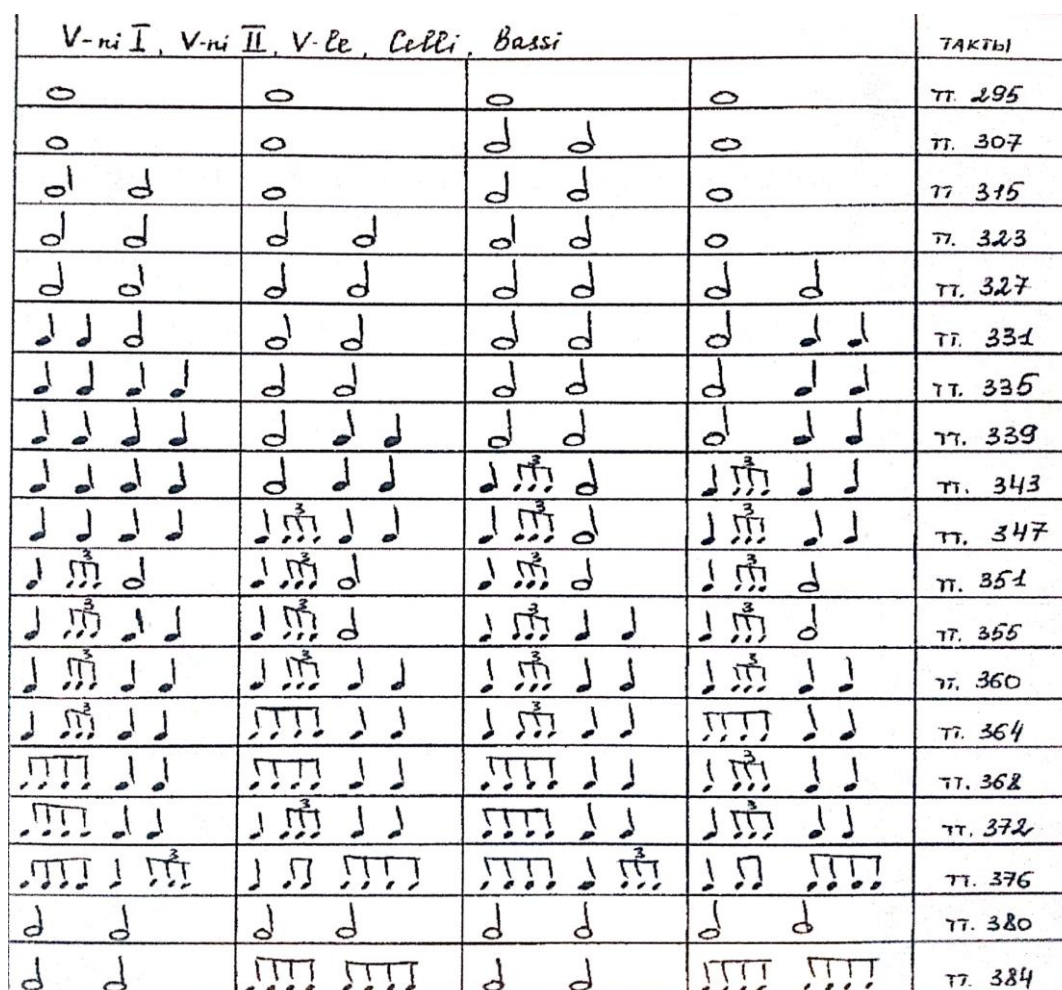 V-ni I, V-ni II, V-le, Celli, Bassi
ТАКТЫ
тт. 295
тт. 307
тт 315
тт. 323
тт. 327
тт. 331
тт. 335
тт. 339
3 3 тт. 343
3 3 3 тт. 347
3 3 3 3 тт. 351
3 3 3 3 тт. 355
3 3 3 3 тт. 360
3 3 тт. 364
3 тт. 368
3 3 тт. 372
3 3 тт. 376
тт. 380
тт. 384